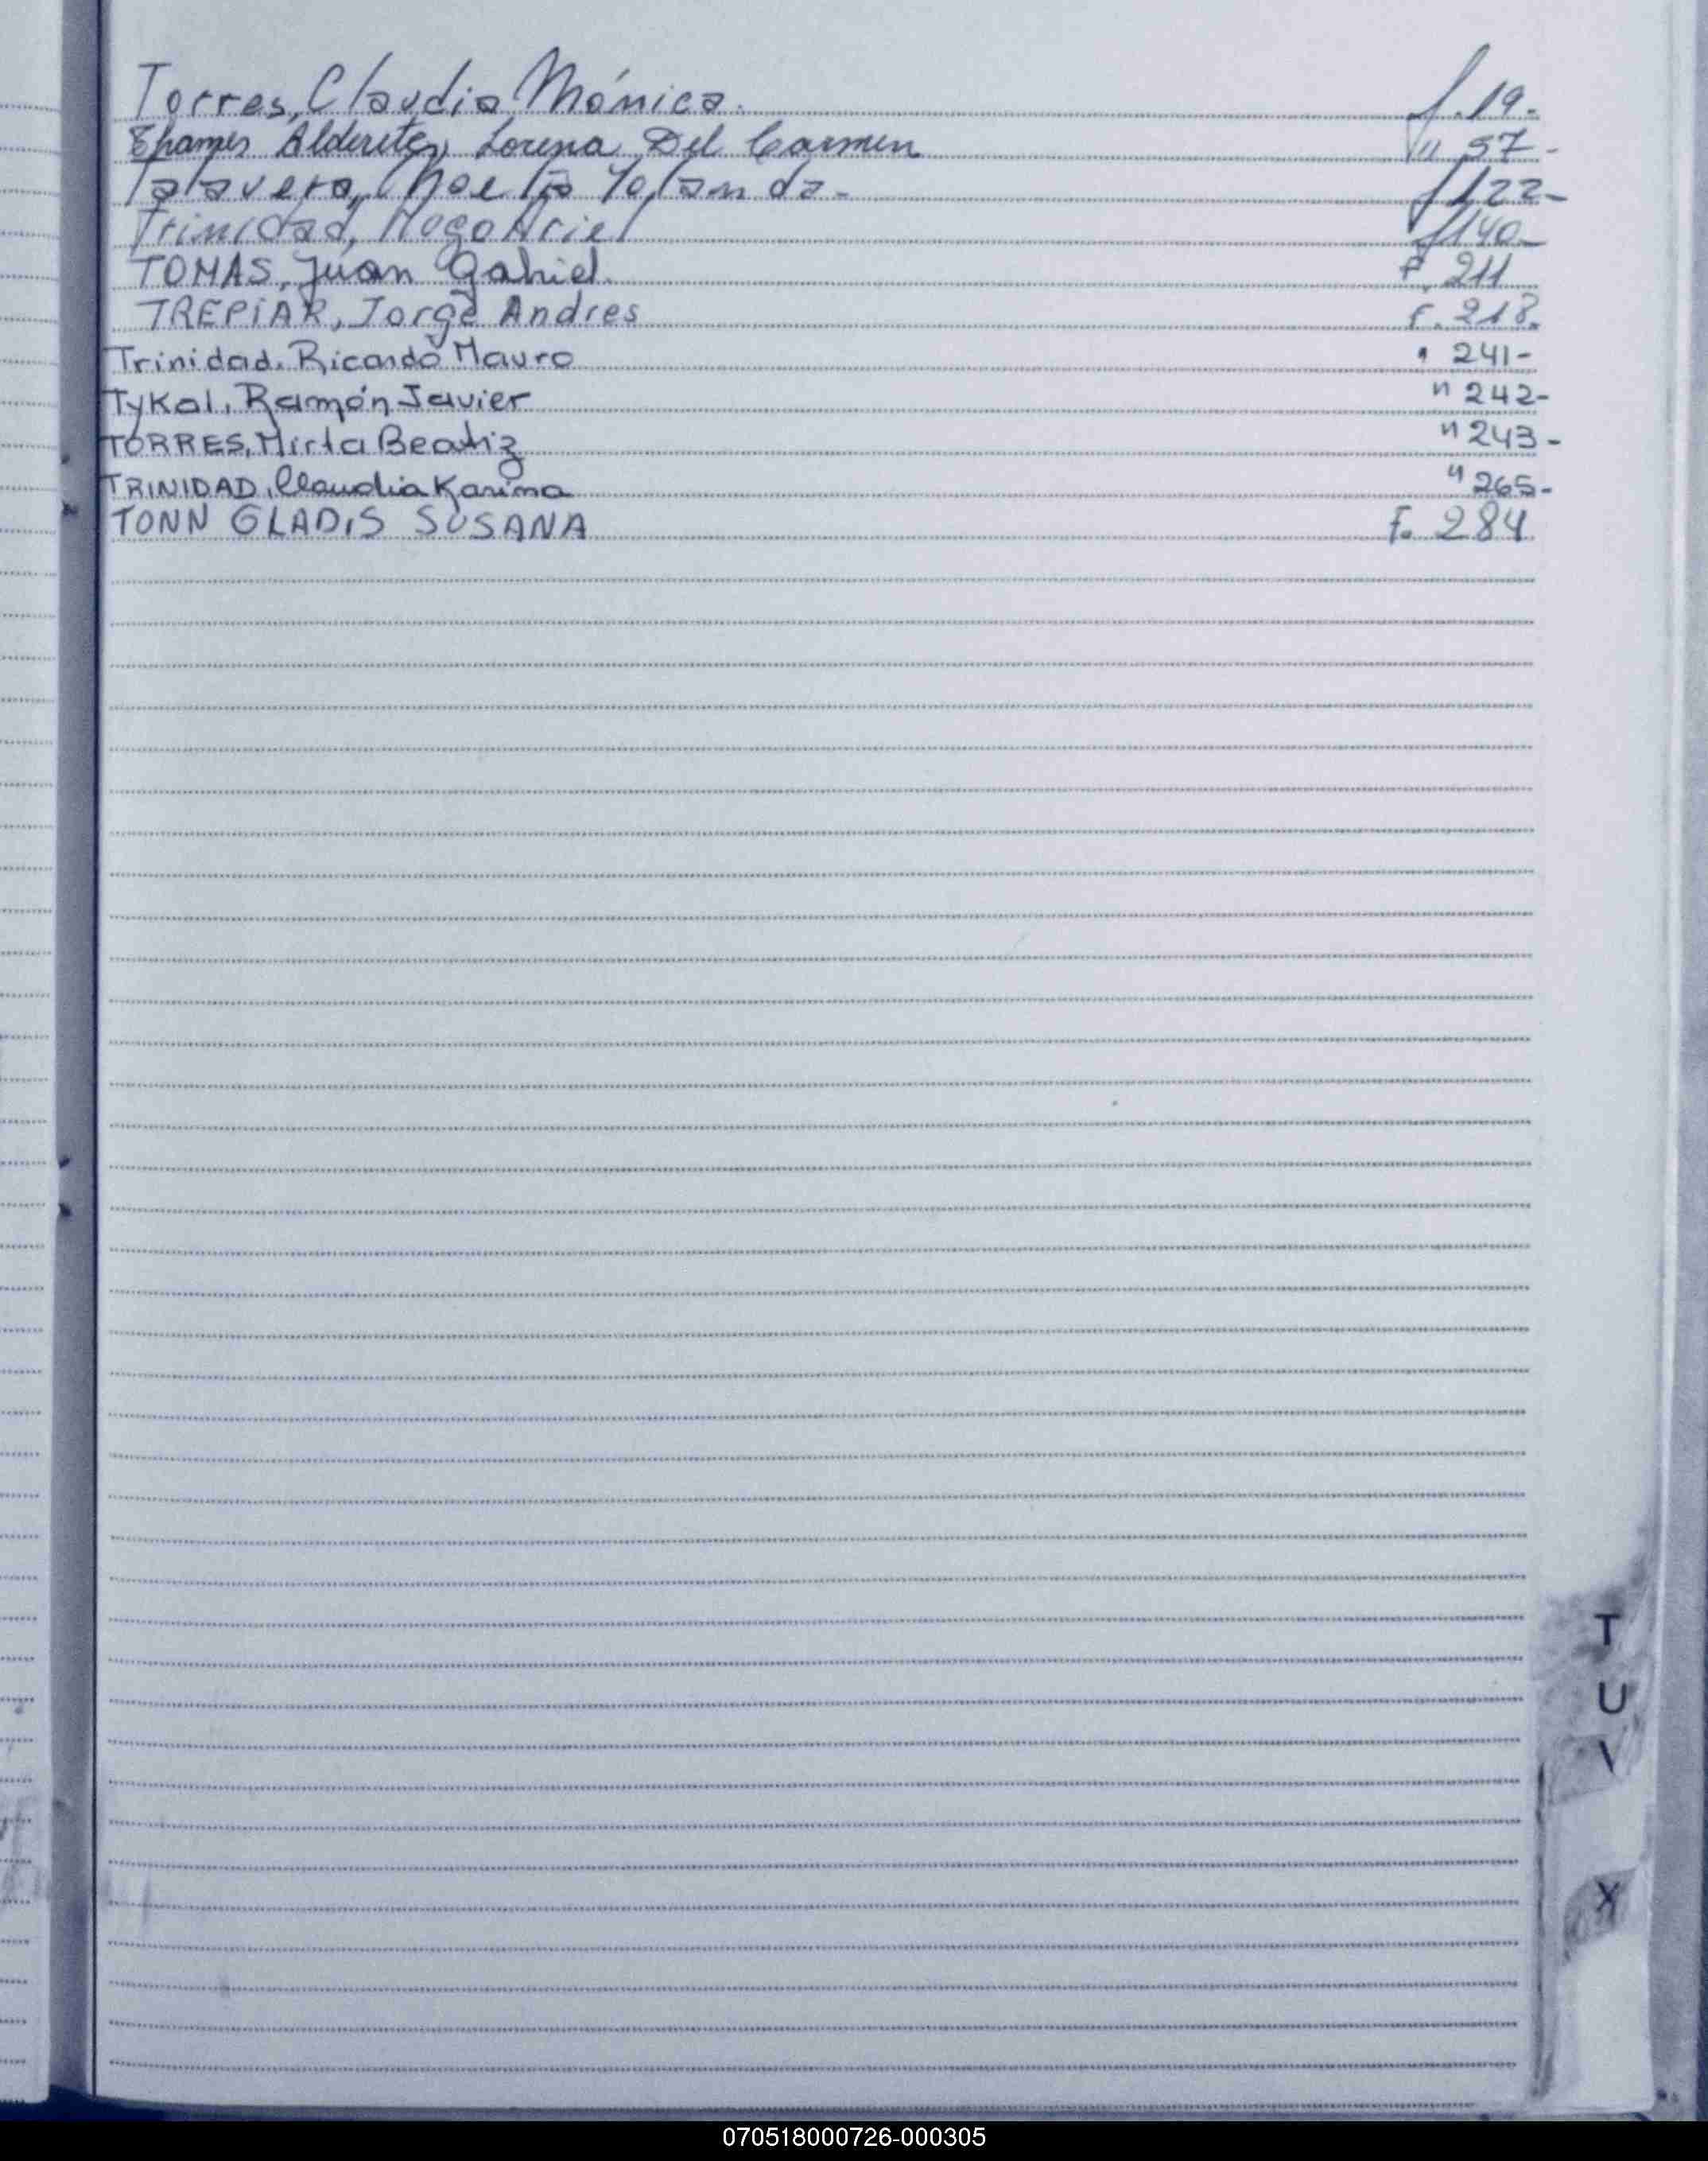 Torres, Claudia Mónica. f. 19-
Thames Alderetes, Lorena Del Carmen " 57-
Talavera, Noelia Yolanda- f 122-
Trinidad, Hugo Ariel f 140-
TOMAS, Juan Gabriel. F. 211
TREPiAR, Jorge Andres F. 218.
Trinidad, Ricardo Mauro " 241-
Tykal, Ramón Javier " 242-
TORRES, Mirta Beatriz " 243-
TRINIDAD, Claudia Karina " 265-
TONN GLADiS SUSANA F. 284
T
U
V
X
070518000726-000305